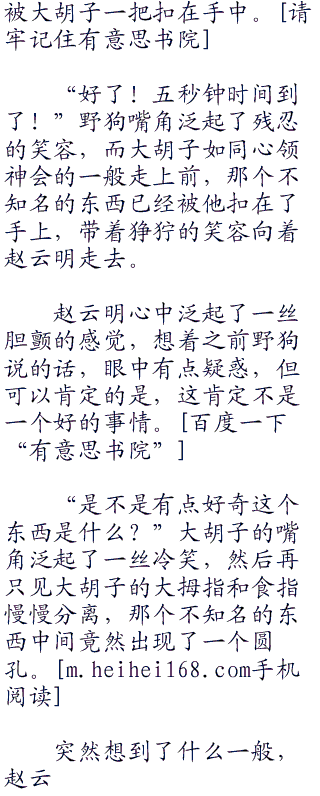 被大胡子一把扣在手中。[请
牢记住有意思书院]
“好了！五秒钟时间到
了！”野狗嘴角泛起了残忍
的笑容，而大胡子如同心领
神会的一般走上前，那个不
知名的东西已经被他扣在了
手上，带着狰狞的笑容向着
赵云明走去。
赵云明心中泛起了一丝
胆颤的感觉，想着之前野狗
说的话，眼中有点疑惑，但
可以肯定的是，这肯定不是
一个好的事情。[百度一下
“有意思书院”]
“是不是有点好奇这个
东西是什么？”大胡子的嘴
角泛起了一丝冷笑，然后再
只见大胡子的大拇指和食指
慢慢分离，那个不知名的东
西中间竟然出现了一个圆
孔。[m.heihei168.com手机
阅读]
突然想到了什么一般，
赵云